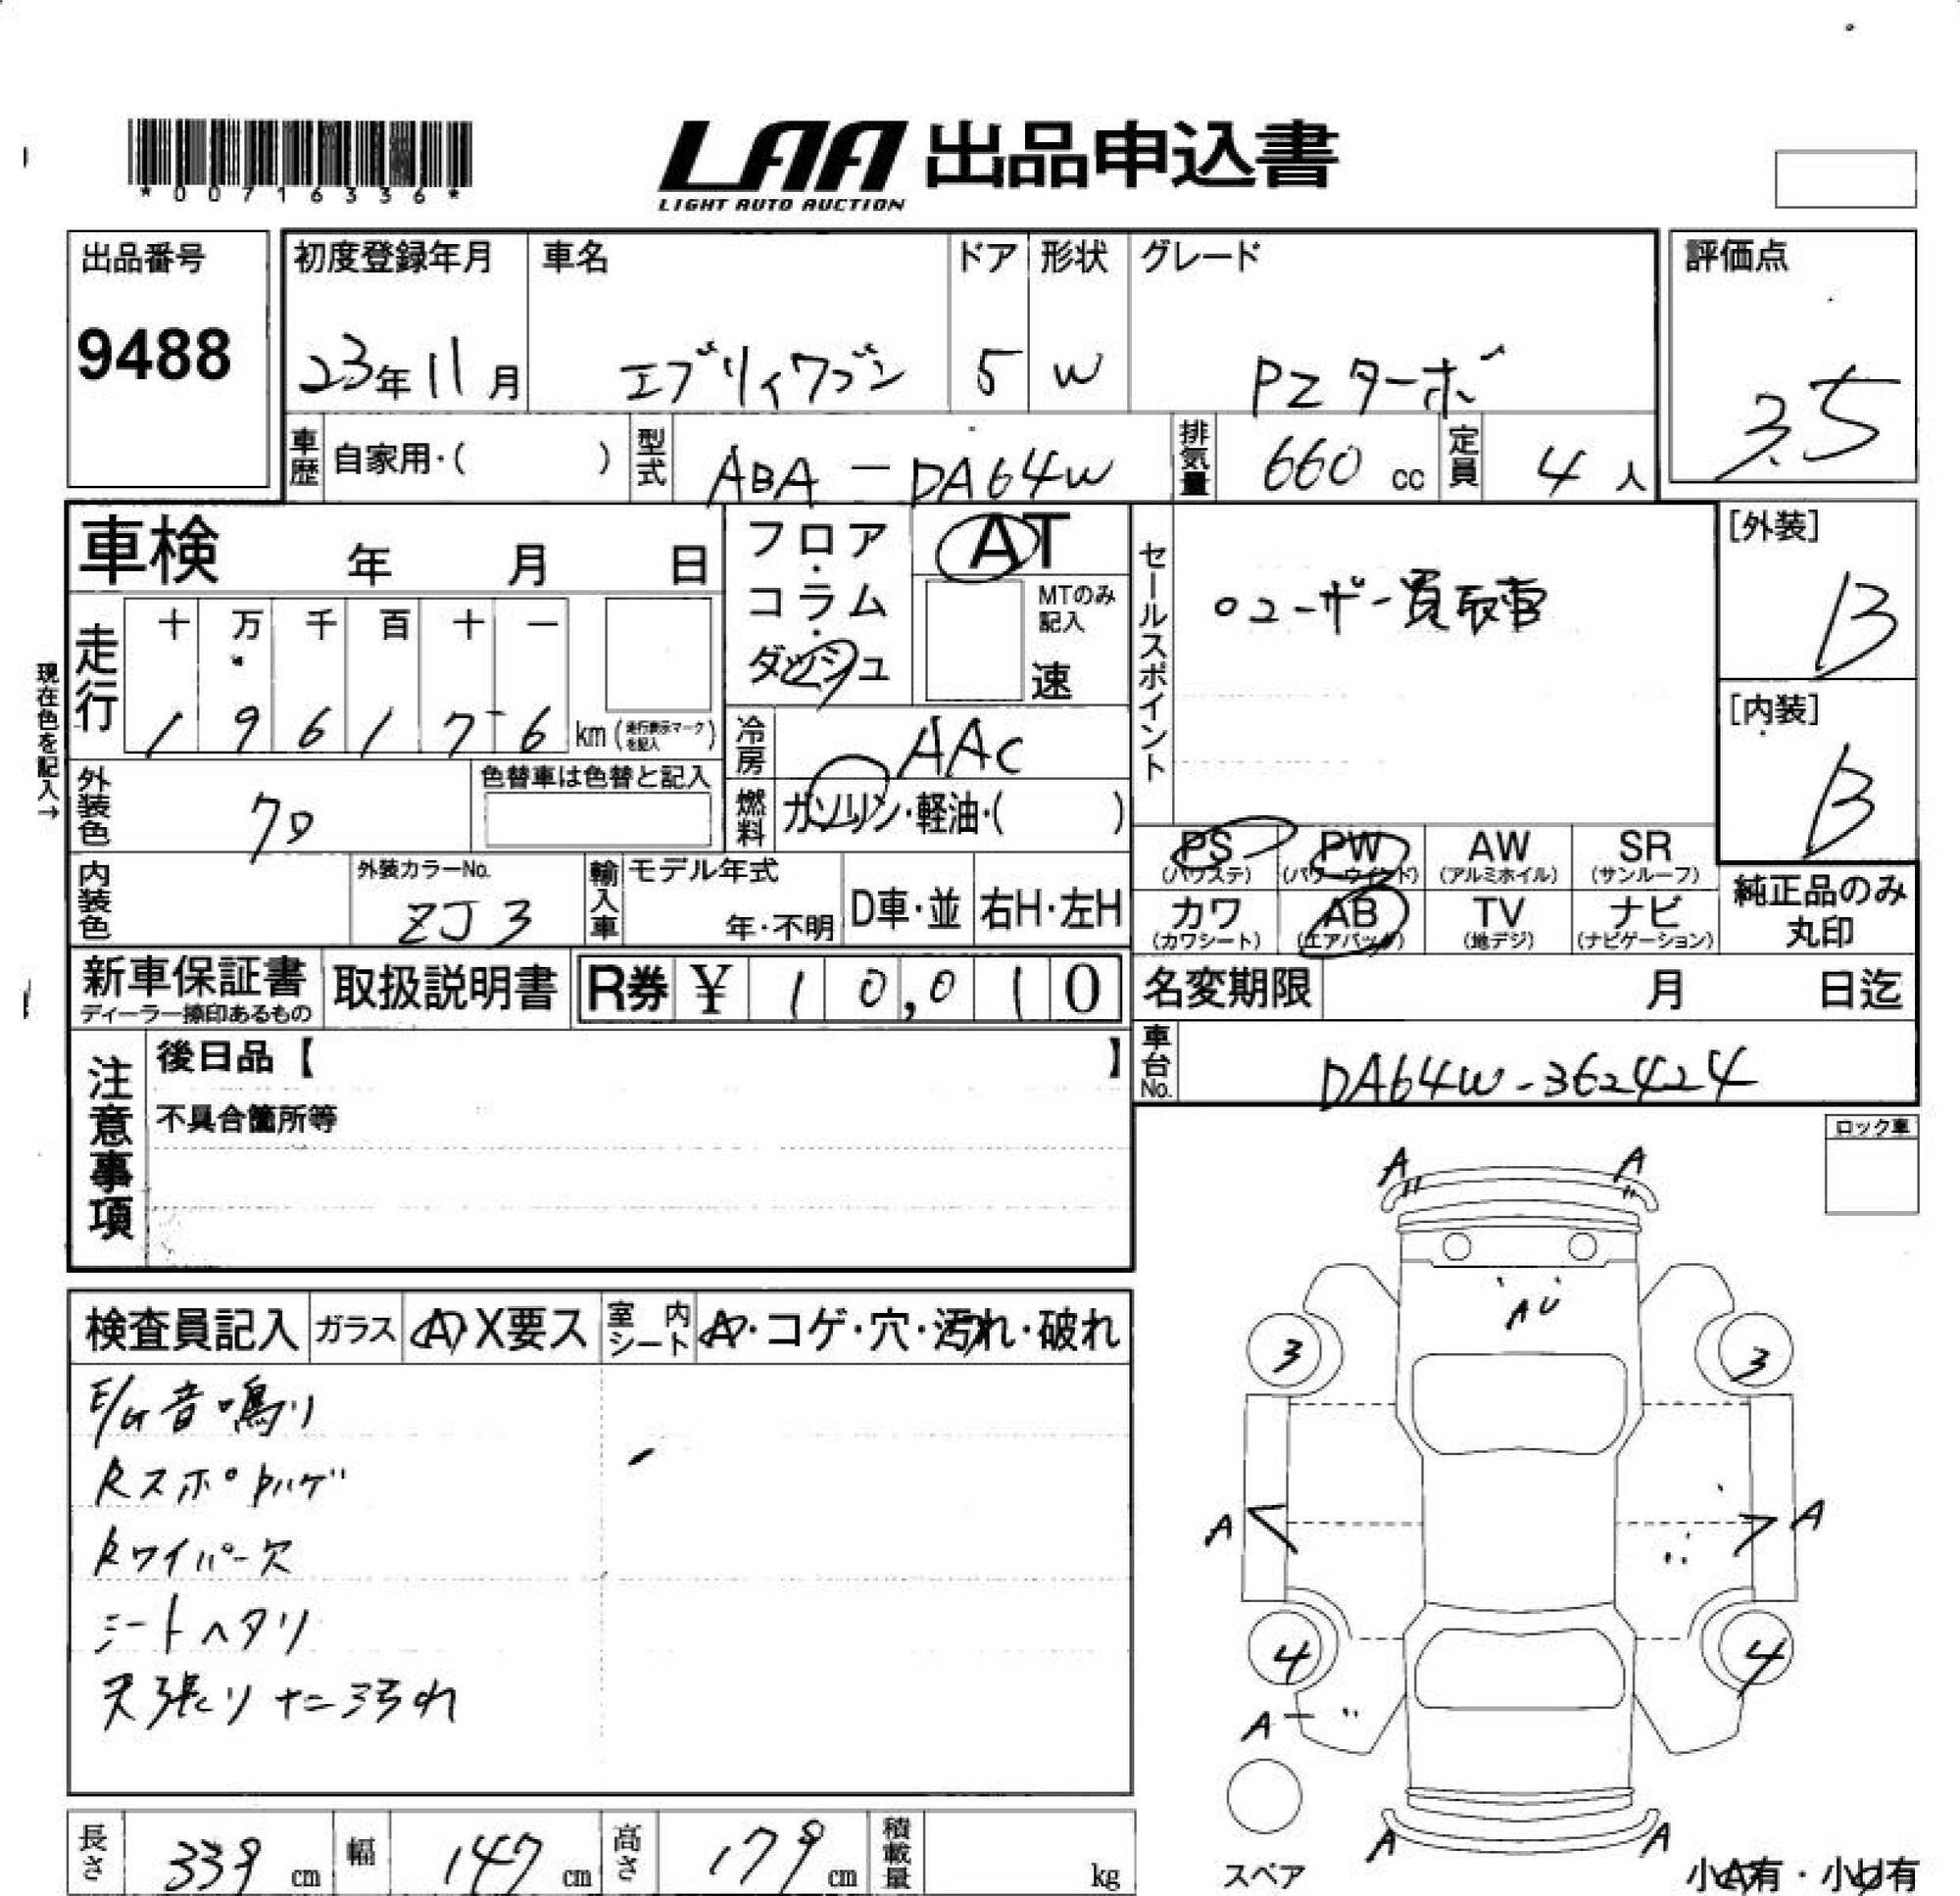 *00716336*
LAA 出品申込書
LIGHT AUTO AUCTION
出品番号
9488
初度登録年月
23年11月
車名
エブリイワゴン
ドア
5
形状
W
グレード
PZターボ
評価点
3.5
車歴 自家用・( )
型式 ABA-DA64W
排気量 660 cc
定員 4 人
車検 年 月 日
フロア・コラム・ダッシュ
AT
MTのみ記入
速
セールスポイント
○ユーザー買取車
[外装]
B
[内装]
B
現在色を記入→
走行
十 万 千 百 十 一
1 9 6 1 7 6 km (走行表示マークを記入)
冷房 AAC
燃料 ガソリン・軽油・( )
外装色 クロ
色替車は色替と記入
内装色
外装カラーNo.
ZJ3
輸入車
モデル年式
年・不明
D車・並
右H・左H
PS (パワステ)
PW (パワーウインド)
AW (アルミホイル)
SR (サンルーフ)
カワ (カワシート)
AB (エアバッグ)
TV (地デジ)
ナビ (ナビゲーション)
純正品のみ丸印
新車保証書
ディーラー捺印あるもの
取扱説明書
R券 ¥ 10,010
名変期限 月 日迄
車台No. DA64W-362424
注意事項
後日品【 】
不具合箇所等
ロック車
検査員記入
ガラス
A X要ス
室内シート
A・コゲ・穴・汚れ・破れ
E/G音鳴り
Rスポハゲ
Rワイパー欠
シートヘタリ
天張リナニ汚れ
A A
AU
3 3
A A
4 4
A
A A
スペア
小A有・小U有
長さ 339 cm
幅 147 cm
高さ 179 cm
積載量 kg